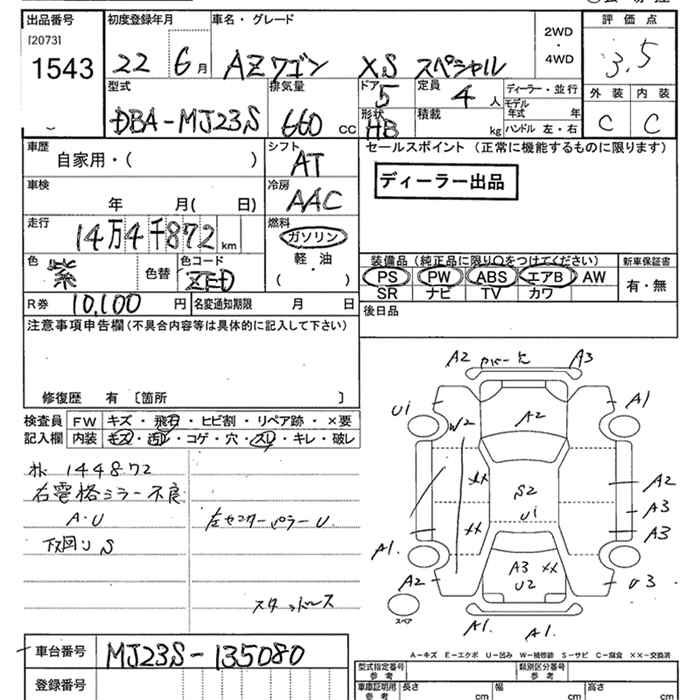 出品番号 初度登録年月 車名・グレード 評価点
[2073]
1543 22 6月 AZワゴン XS スペシャル 2WD・4WD 3.5
型式 排気量 ドア 5 定員 4人 ディーラー・並行 外装 内装
DBA-MJ23S 660 CC 形状 HB 積載 kg モデル年式 年 ハンドル 左・右 C C
車歴 シフト セールスポイント (正常に機能するものに限ります)
自家用・( ) AT
ディーラー出品
車検 冷房
年 月( 日) AAC
走行 燃料
14万4千872km ガソリン
軽・油
( )
色 紫 色替 色コード ZED
装備品(純正品に限り○をつけてください) 新車保証書
PS PW ABS エアB AW 有・無
SR ナビ TV カワ
R券 10,100円 名変通知期限 月 日
後日品
注意事項申告欄(不具合内容等は具体的に記入して下さい)
修復歴 有 〔箇所 〕
検査員 FW キズ・飛石・ヒビ割・リペア跡・×要
記入欄 内装 キズ・汚れ・コゲ・穴・スレ・キレ・破レ
144872
右電格ミラー不良
A・U 左センターピラーU
下回りS
スタッドレス
A2 A3
U1 A2 A1
W2
XX S2 A2
U1 A3
XX A3
A1. A3 XX
A2 U2 U3
スペア
A1. A1.
A-キズ E-エクボ U-凹み W-補修跡 S-サビ C-腐食 XX-交換済
車台番号 MJ23S-135080
登録番号
型式指定番号 参考 類別区分番号 参考
車庫証明用 参考 長さ cm 幅 cm 高さ cm